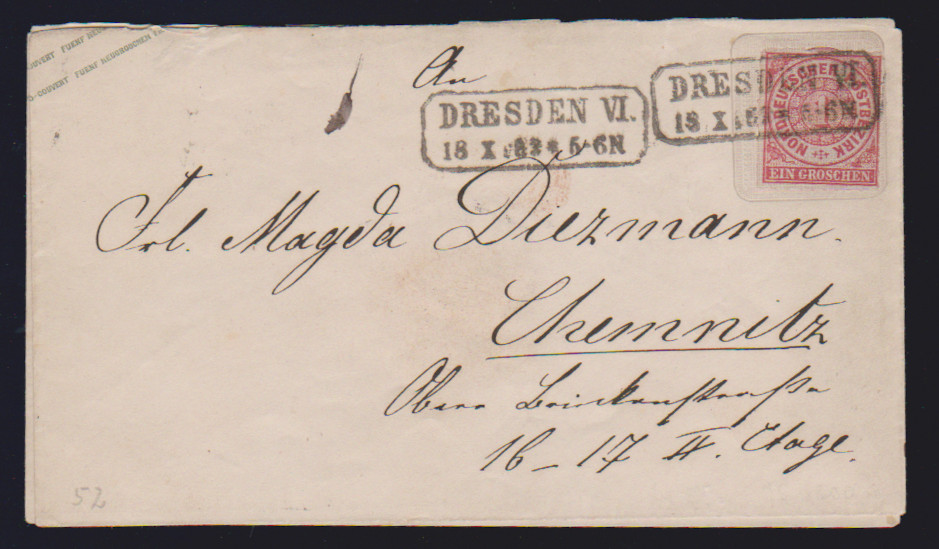 OUVERT FUENF NEUGROSCHEN
S-COUVERT FUENF NEUGROSCHEN
An
DRESDEN VI.
18 X 5-6N
DRESDEN VI.
18 X 5-6N
NORDDEUTSCHER POSTBEZIRK
1
EIN GROSCHEN
Frl. Magda Diezmann.
Chemnitz
Obere Brückenstraße
16-17 II. Etage.
52